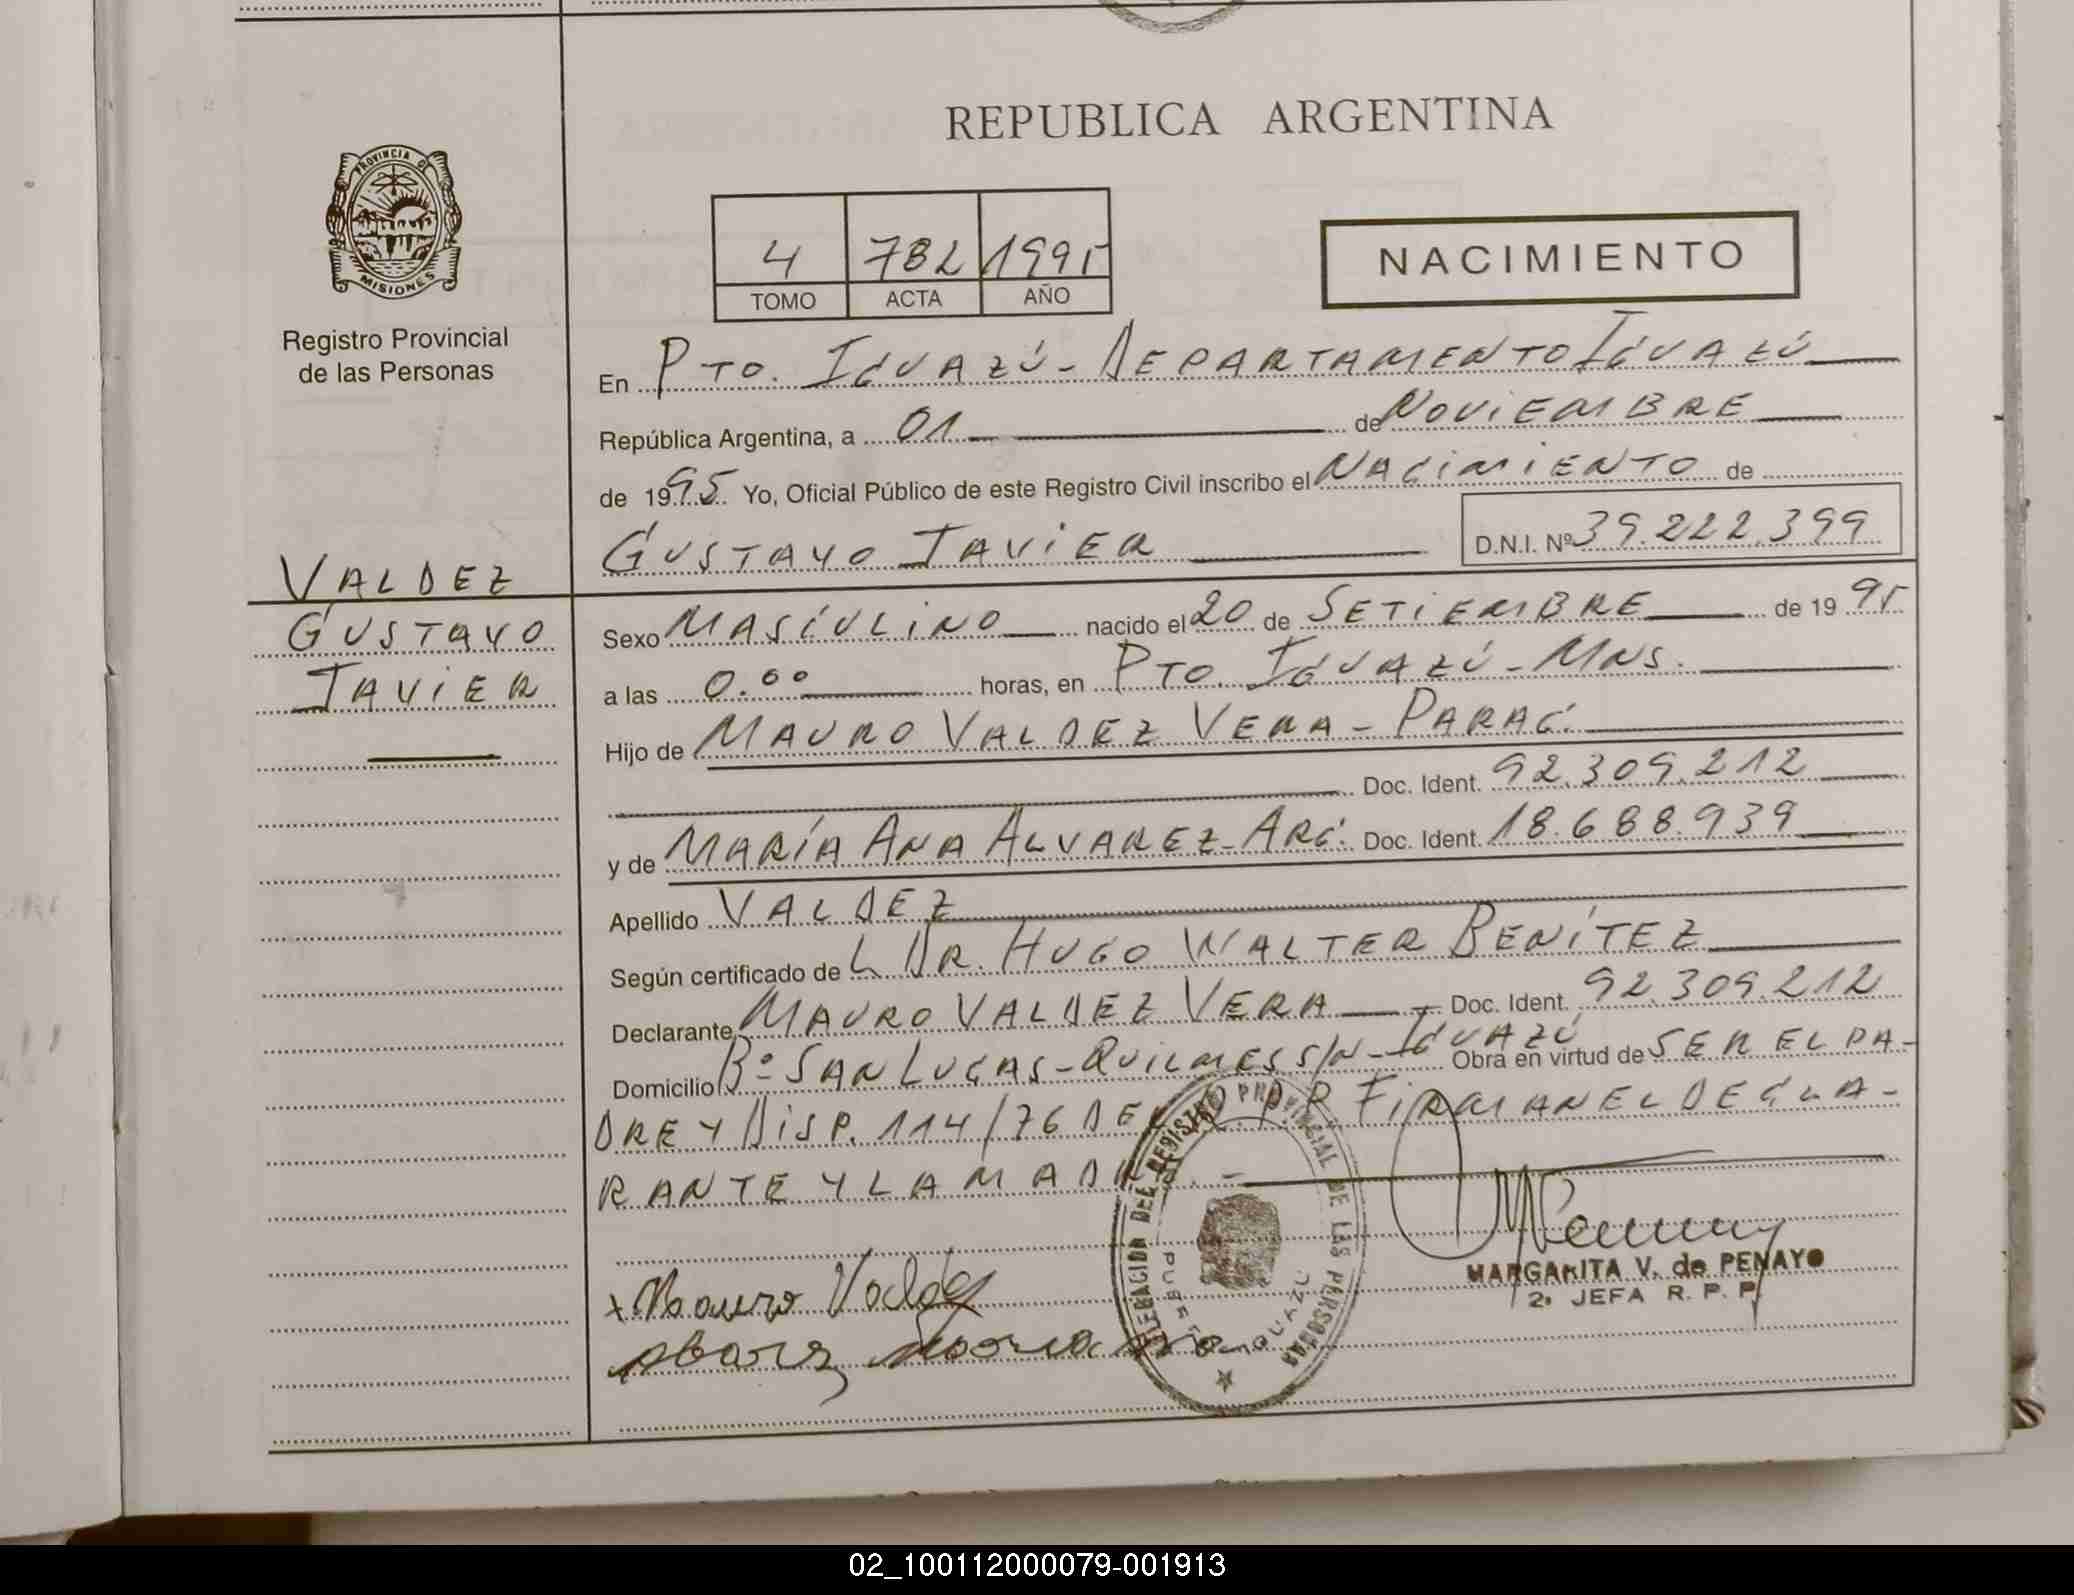 REPUBLICA ARGENTINA
PROVINCIA DE MISIONES
Registro Provincial
de las Personas
4 782 1995
TOMO ACTA AÑO
NACIMIENTO
En PTO. IGUAZÚ - DEPARTAMENTO IGUAZÚ
República Argentina, a 01 de NOVIEMBRE
de 1995 Yo, Oficial Público de este Registro Civil inscribo el NACIMIENTO de
GUSTAVO JAVIER D.N.I. Nº 39.222.399
VALDEZ
GUSTAVO
JAVIER
Sexo MASCULINO nacido el 20 de SETIEMBRE de 1995
a las 0.00 horas, en PTO. IGUAZÚ - MNS.
Hijo de MAURO VALDEZ VERA - PARAG.
Doc. Ident. 92.309.212
y de MARÍA ANA ALVAREZ - ARG. Doc. Ident. 18.688.939
Apellido VALDEZ
Según certificado de L DR. HUGO WALTER BENÍTEZ
Declarante MAURO VALDEZ VERA Doc. Ident. 92.309.212
Domicilio Bº SAN LUCAS - QUILMES S/N - IGUAZÚ Obra en virtud de SER EL PA-
DRE Y DISP. 114/76 DEL R.P.P. FIRMAN EL DECLA-
RANTE Y LA MADRE. -
DELEGACION DEL REGISTRO PROVINCIAL DE LAS PERSONAS
PUERTO IGUAZU
x Mauro Valdez
MARGARITA V. de PENAYO
2ª JEFA R. P. P.
02_100112000079-001913